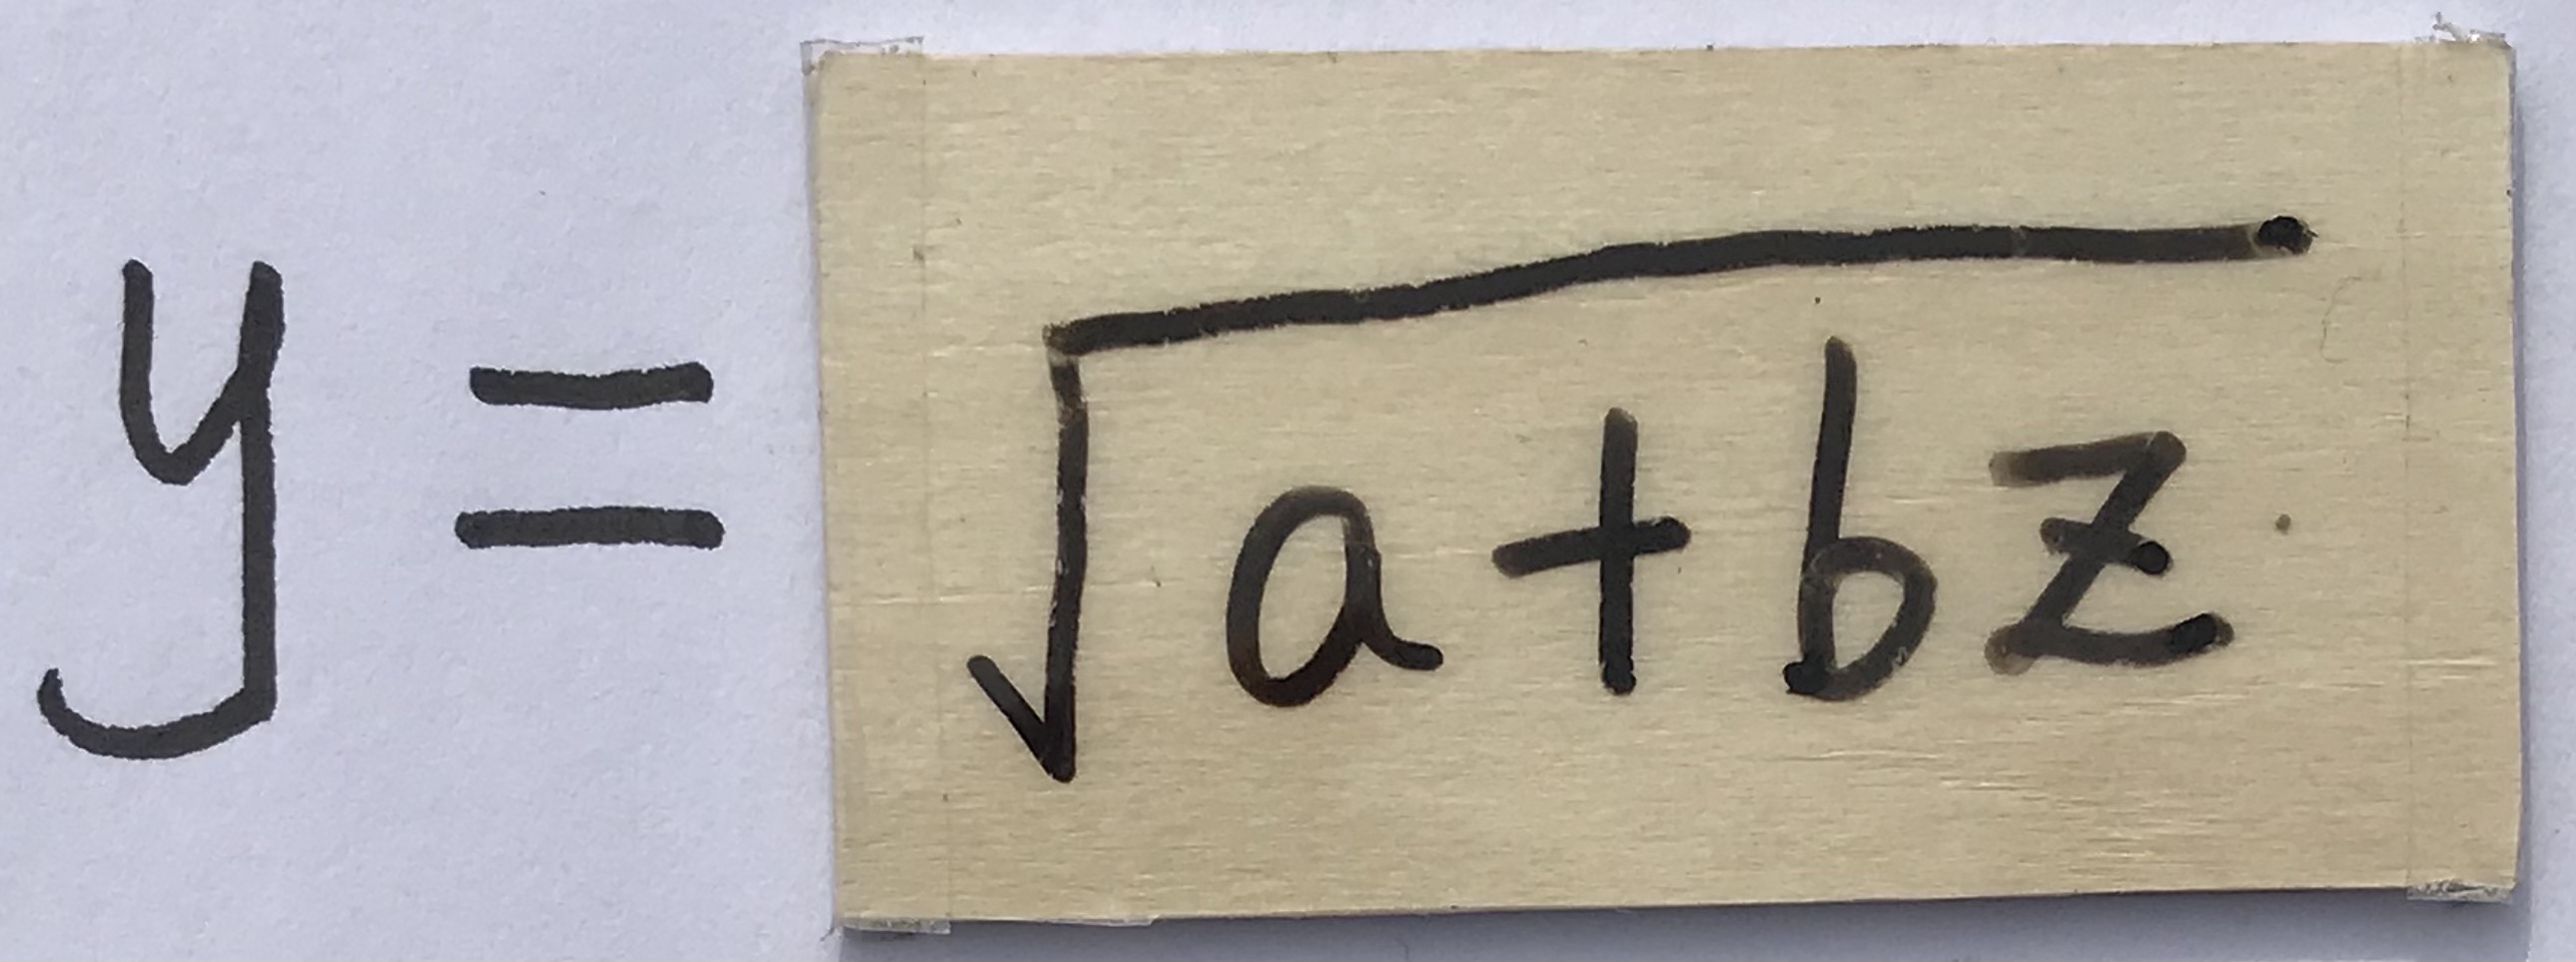 y = √(a+bz)